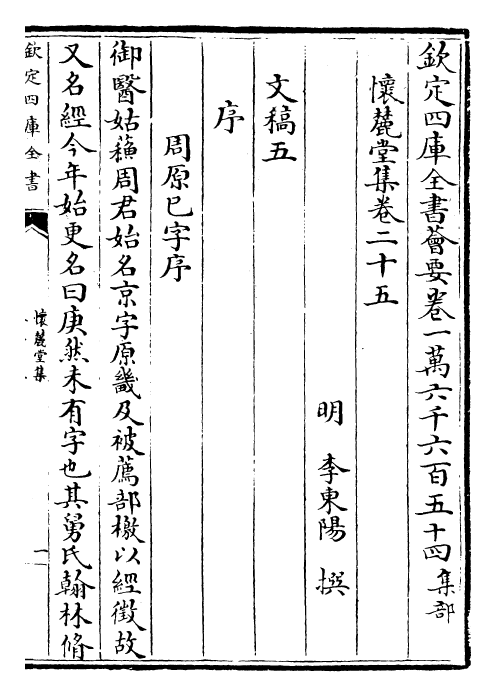 欽定四庫全書薈要卷一萬六千六百五十四集部
懷麓堂集卷二十五
明 李東陽 撰
文稿五
序
周原巳字序
御醫姑蘓周君始名京字原畿及被薦部檄以經徵故
又名經今年始更名曰庚然未有字也其舅氏翰林脩
欽定四庫全書
懷麓堂集
一